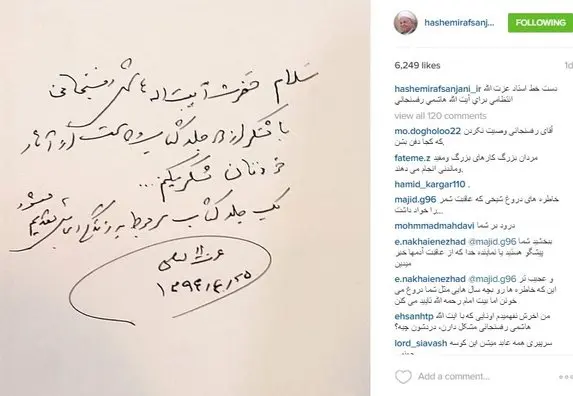 سلام حضرت آیت اله هاشمی رفسنجانی
با تشکر از جلد کتاب و آثار
خودتان تشکر میکنم...
یک جلد کتاب مربوط به زندگی تقدیم میشود
عزت اله انتظامی
۱۳۹۴/۴/۲۵
hashemirafsanj...
FOLLOWING
6,249 likes
1d
hashemirafsanjani_ir دست خط استاد عزت الله
انتظامي براي آيت الله هاشمي رفسنجاني
view all 120 comments
mo.dogholoo22 آقای رفسنجانی وصیت نکردن
که کجا دفن بشن.
fateme.z مردان بزرگ کارهای بزرگ ومفید
وماندنی انجام می دهند.
hamid_kargar110 .
majid.g96 خاطره های دروغ شیخی که عاقبت شمر
را خواد داشت...
mohmmadmahdavi درود بر شما
e.nakhaienezhad @majid.g96 ببخشید شما
پیشگو هستید یا نماینده خدا که از عاقبت آدمها خبر
میدین
e.nakhaienezhad @majid.g96 و عجیب تر
این که خاطره ها رو بچه سال هایی مثل شما دروغ می
خونن اما بیت امام رحمه الله تایید می کنن
ehsanhtp من اخرش نفهمیدم اونایی که با ایت الله
هاشمی رفسنجانی مشکل دارن، دردشون چیه؟
lord_siavash سرپیری همه عابد میشن این کوسه
Add a comment...